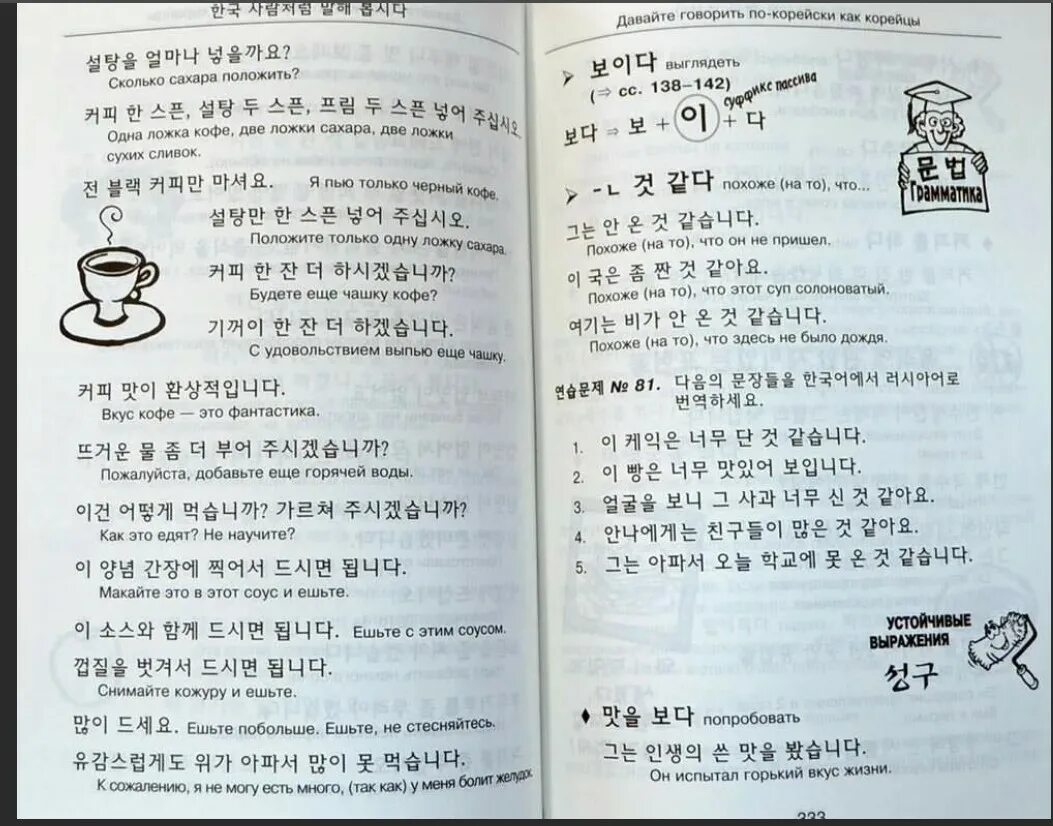 한국 사람처럼 말해 봅시다
설탕을 얼마나 넣을까요?
Сколько сахара положить?
커피 한 스푼, 설탕 두 스푼, 프림 두 스푼 넣어 주십시오.
Одна ложка кофе, две ложки сахара, две ложки
сухих сливок.
전 블랙 커피만 마셔요. Я пью только черный кофе.
설탕만 한 스푼 넣어 주십시오.
Положите только одну ложку сахара.
커피 한 잔 더 하시겠습니까?
Будете еще чашку кофе?
기꺼이 한 잔 더 하겠습니다.
С удовольствием выпью еще чашку.
커피 맛이 환상적입니다.
Вкус кофе — это фантастика.
뜨거운 물 좀 더 부어 주시겠습니까?
Пожалуйста, добавьте еще горячей воды.
이건 어떻게 먹습니까? 가르쳐 주시겠습니까?
Как это едят? Не научите?
이 양념 간장에 찍어서 드시면 됩니다.
Макайте это в этот соус и ешьте.
이 소스와 함께 드시면 됩니다. Ешьте с этим соусом.
껍질을 벗겨서 드시면 됩니다.
Снимайте кожуру и ешьте.
많이 드세요. Ешьте побольше. Ешьте, не стесняйтесь.
유감스럽게도 위가 아파서 많이 못 먹습니다.
К сожалению, я не могу есть много, (так как) у меня болит желудок.
Давайте говорить по-корейски как корейцы
➢ 보이다 выглядеть
(⇒ сс. 138–142)
суффикс пассива
보다 ⇒ 보 + 이 + 다
문법
Грамматика
➢ -ㄴ 것 같다 похоже (на то), что...
그는 안 온 것 같습니다.
Похоже (на то), что он не пришел.
이 국은 좀 짠 것 같아요.
Похоже (на то), что этот суп солоноватый.
여기는 비가 안 온 것 같습니다.
Похоже (на то), что здесь не было дождя.
연습문제 № 81. 다음의 문장들을 한국어에서 러시아어로
번역하세요.
1. 이 케익은 너무 단 것 같습니다.
2. 이 빵은 너무 맛있어 보입니다.
3. 얼굴을 보니 그 사과 너무 신 것 같아요.
4. 안나에게는 친구들이 많은 것 같아요.
5. 그는 아파서 오늘 학교에 못 온 것 같습니다.
УСТОЙЧИВЫЕ
ВЫРАЖЕНИЯ
성구
♦ 맛을 보다 попробовать
그는 인생의 쓴 맛을 봤습니다.
Он испытал горький вкус жизни.